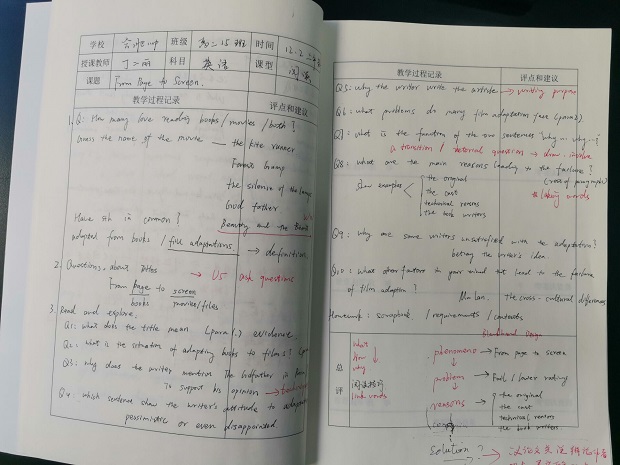 学校 班级 高二15班 时间 12.2
授课教师 丁一丽 科目 英语 课型 阅读
课题 From Page to Screen.
教学过程记录 评点和建议
1. Q: How many love reading books / movies / both?
Guess the name of the movie — the kite runner
Forrest Gump
the silence of the lambs
God father
Have sth in common? Beauty and the Beast
adapted from books / film adaptations → definition
2. Questions about titles → US ask questions
From page to screen
books movies/films
3. Read and explore.
Q1: what does the title mean (para1.) evidence.
Q2: what is the situation of adapting books to films?
Q3: why does the writer mention The Godfather in
To support his opinion →
Q4: which sentence show the writer's attitude to
pessimistic or even disappointed
教学过程记录 评点和建议
Q5: why the writer write the article → writing purpose
Q6: what problems do many film adaptation face (para2).
Q7: what is the function of the two sentences "why ... why ...?"
a transition / rhetorical question → draw, involve
Q8: what are the main reasons leading to the failure?
show examples the original
the cast → linking words
technical reasons
the book writers
Q9: why are some writers unsatisfied with the adaptation?
betray the writer's idea.
Q10: what other factors in your mind that lead to the failure
of film adaption? Mulan, the cross-cultural differences
Homework: scrapbook / requirements / contents
Blackboard Design
总评
what
how
why
link words
phenomeno → From page to screen
problem → Fail / lower rating
reasons → the original
the cast
technical reasons
the book writers
solution?